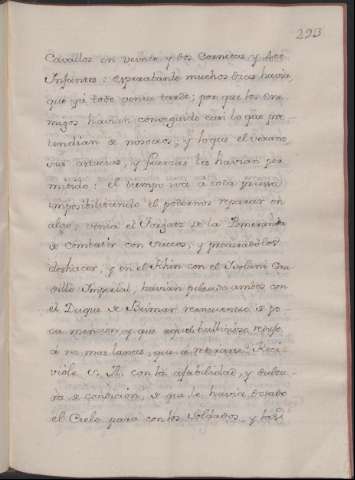 293
Cavallos en veinte y dos Cornetas y dos
Infantes: esperatarde muchos dias havia,
que ya todo venia tarde; por que los Ene
migos havian conseguido casi lo que pre
tendian de nosotros; y lo que el verano,
sus astucias, y fuerzas les havian per
mitido: el tiempo iva a toda priesa
imposibilitando el podernos reparar en
algo; venia el de la Pomerania
de combatir con Suecos, y procurabalos
deshacer, y en el Rhin con el Isolani Cau
dillo Imperial, havian peleado ambos con
el Duque de Beimar renquentros de po
ca mencion, y que aquel
a no mas lances, que a retirarse. Reci
viole S. A. con la afabilidad, y dulzu
ra de condicion, de que le havia dotado
el Cielo para con los Soldados, y